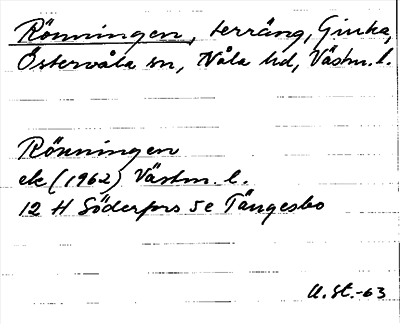 Rönningen, terräng, Ginka,
Östervåla sn, Våla hd, Västm. l.
Rönningen
ek (1962) Västm. l.
12 H Söderfors 5e Tängesbo
U. St. -63